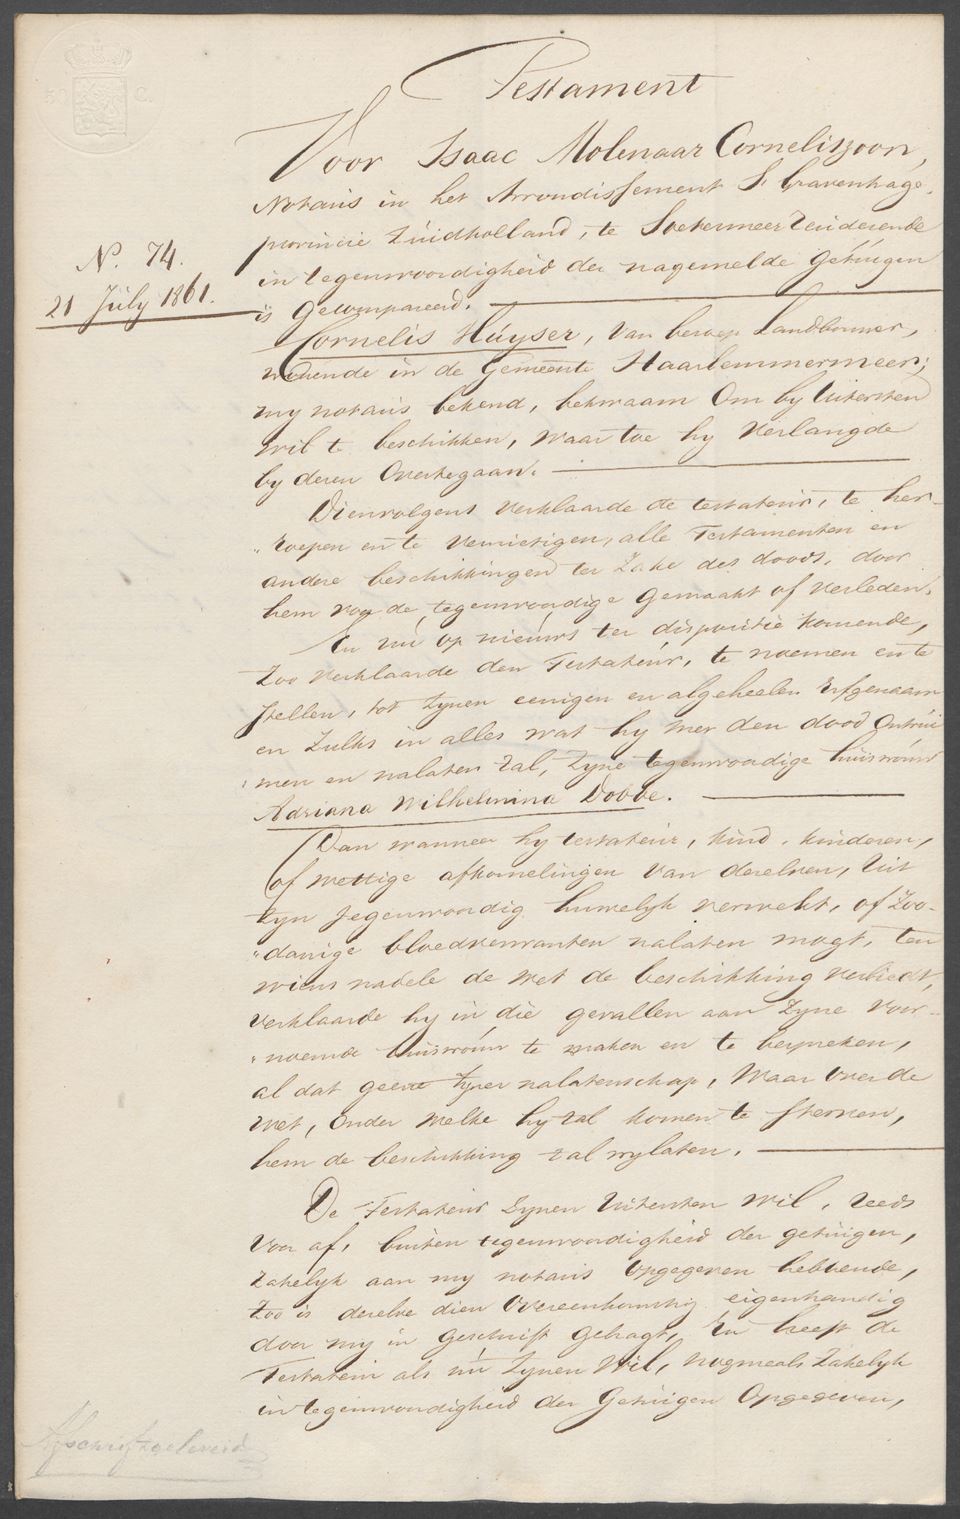 50 C.
Testament
Voor Isaac Molenaar Corneliszoon,
Notaris in het Arrondissement S' Gravenhage,
provincie Zuidholland, te Soetermeer Zeideinde
N. 74.
in tegenwoordigheid der nagemelde Getuigen
21 July 1861.
is Gecompareerd.
Cornelis Huyser, van beroep Landbouwer,
wonende in de Gemeente Haarlemmermeer;
my notaris bekend, bekwaam Om by Uitersten
wil te beschikken, waar toe hy Verlangde
by deren Overtegaan.
Dienvolgens Verklaarde de testateur, te her-
"roepen en te Vernietigen, alle Testamenten en
andere beschikkingen ter Zake des doods, door
hem voor de tegenwoordige Gemaakt of Verleden.
En nu op nieuws ter dispositie komende,
Zoo Verklaarde den Testateur, te noemen en te
stellen, tot Zynen eenigen en algeheelen Erfgenaam
en Zulks in alles wat hy met den dood Ontrui
"men en nalaten Zal, Zyne tegenwoordige huisvrouw
Adriana Wilhelmina Dobbe.
Dan wanneer hy testateur, kind, kinderen,
of wettige afkomelingen van dezelven, Uit
Zyn Jegenwoordig huwelyk verwekt, of Zoo-
"danige bloedverwanten nalaten mogt, ten
wiens nadele de wet de beschikking verbiedt,
Verklaarde hy in die gevallen aan Zyne Voor-
"noemde huisvrouw te maken en te bespreken,
al dat geene Zyner nalatenschap, Waar Over de
wet, Onder Welke hy Zal komen te sterven,
hem de beschikking Zal vrylaten.
De Testateur Zynen Uitersten Wil, reeds
Voor af, buiten tegenwoordigheid der getuigen,
Zakelyk aan my notaris Opgegeven hebbende,
Zoo is dezelve dien Overeenkomstig eigenhandig
door my in Geschrift Gebragt, En heeft de
Testateur als nu Zynen Wil, nogmaals Zakelyk
in tegenwoordigheid der Getuigen Opgegeven,
Afschrift geleverd